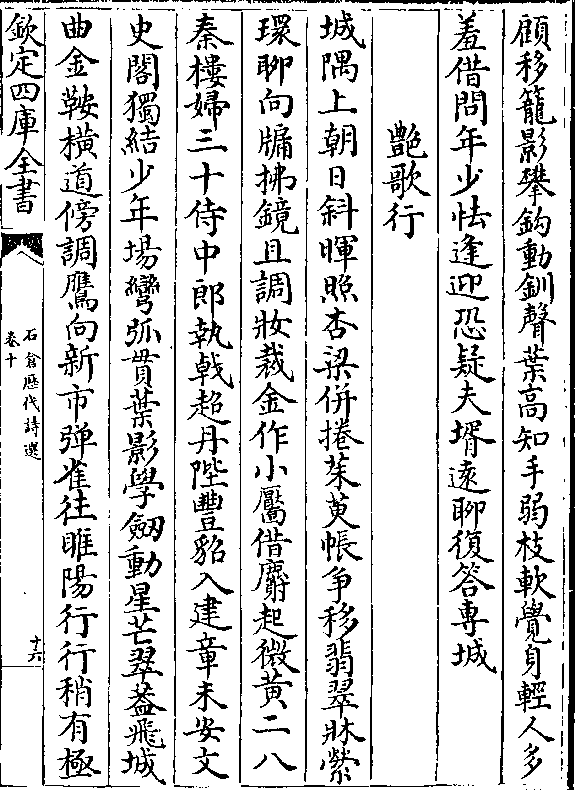 顧移籠影攀鈎動釧聲葉高知手弱枝軟覺身輕人多
羞借問年少怯逢迎恐疑夫壻遠聊復答專城
艶歌行
城隅上朝日斜暉照杏梁併捲茱萸帳争移翡翠牀縈
環聊向牖拂鏡且調妝裁金作小靨借麝起微黃二八
秦樓婦三十侍中郎執戟超丹陛豐貂入建章未安文
史閣獨結少年場彎弧貫葉影學劒動星芒翠葢飛城
曲金鞍横道傍調鷹向新市弹雀往睢陽行行稍有極
欽定四庫全書
石倉歷代詩選
卷十
十六